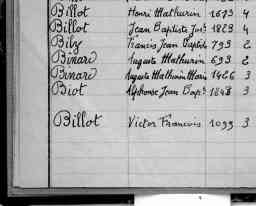 Billot Henri Mathurin 1673 4
Billot Jean Baptiste Jos. 1823 4
Bily Francis Jean Baptiste 793 2
Binard Auguste Mathurin 693 2
Binard Auguste Mathurin Marie 1426 3
Biot Alphonse Jean Bapt 1848 3
Billot Victor Francois 1099 3